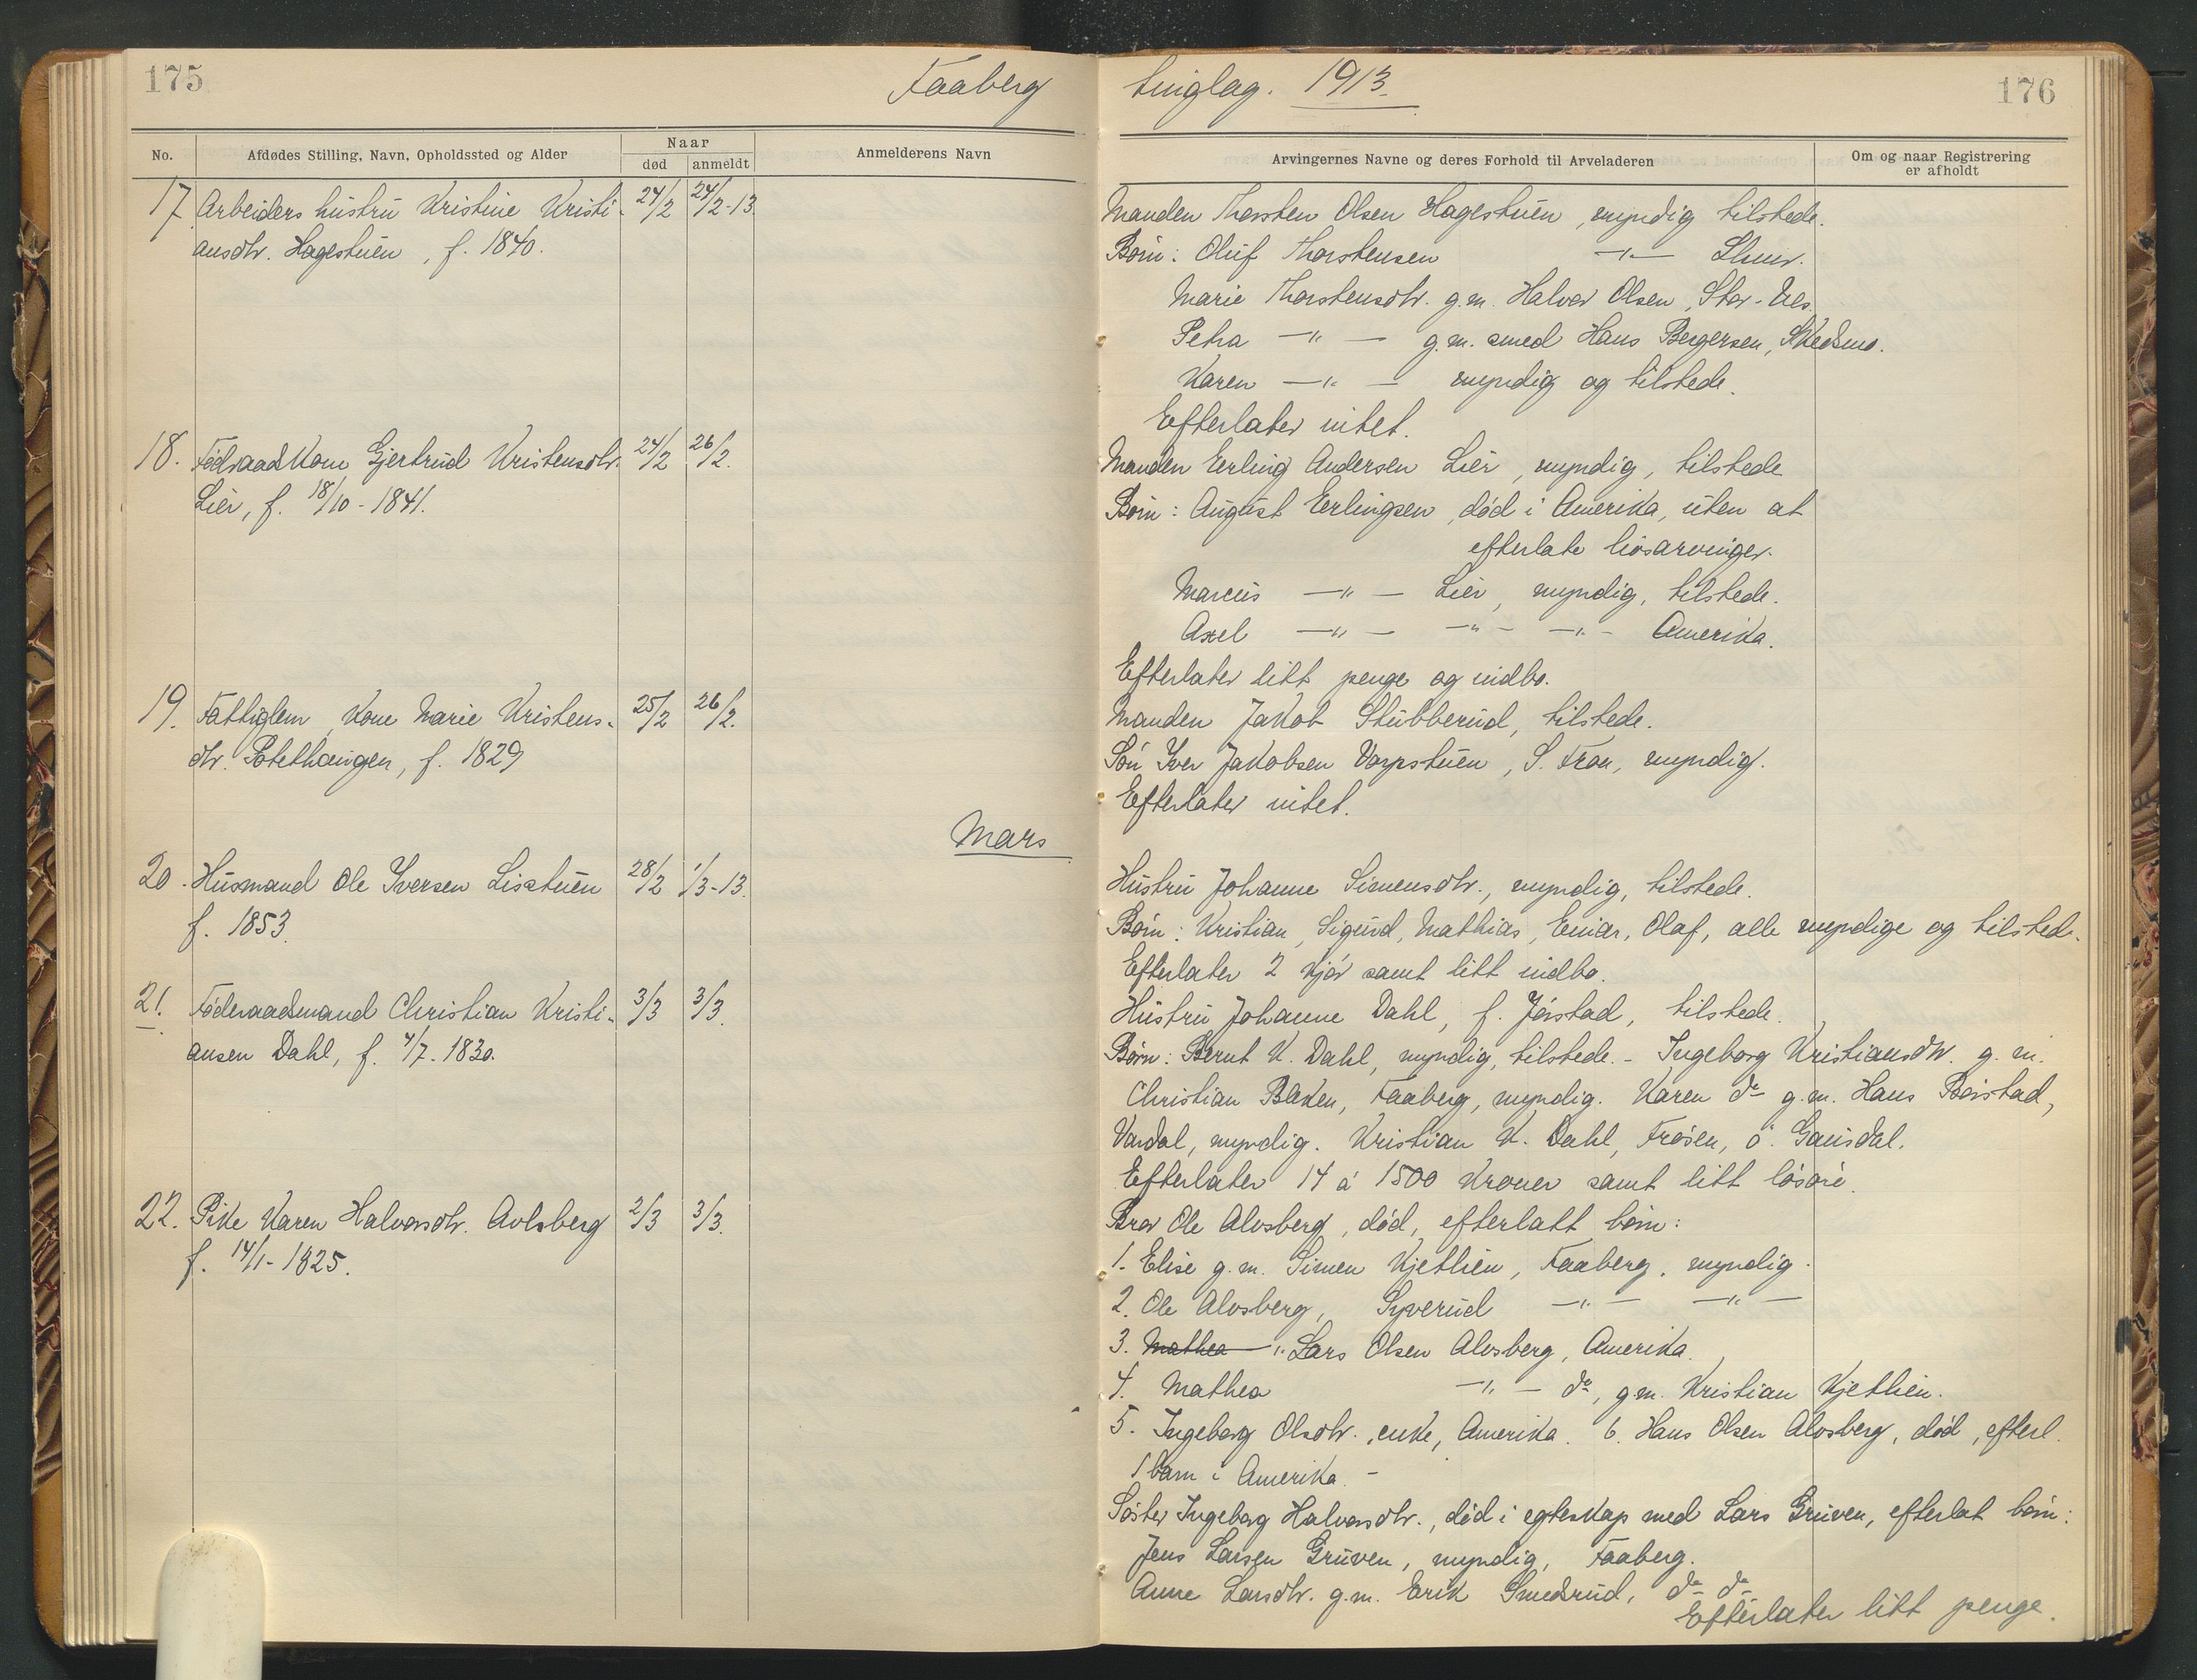 175
Faaberg
No.
Afdødes Stilling, Navn, Opholdssted og Alder
Naar
død
anmeldt
Anmelderens Navn
17. Arbeiders hustru Kristine Kristi- 24/2 24/2-13.
ansdtr. Hagestuen, f. 1840.
18. Föderaadskone Gjertrud Kristensdtr. 24/2 26/2.
Lier, f. 18/10-1841.
19. Fattiglem, Kone Marie Kristens- 25/2 26/2.
dtr. Potethaugen, f. 1829
Mars
20. Husmand Ole Iversen Lisstuen 28/2 1/3-13.
f. 1853.
21. Föderaadsmand Christian Kristi- 3/3 3/3.
ansen Dahl, f. 4/7-1830.
22. Pike Karen Halvorsdtr. Avlsberg 2/3 3/3.
f. 14/1-1825.
tinglag. 1913.
176
Arvingernes Navne og deres Forhold til Arveladeren
Om og naar Registrering
er afholdt
Manden Thorsten Olsen Hagestuen, myndig tilstede.
Börn: Oluf Thorstensen —„—
Marie Thorstensdtr. g.m. Halvor Olsen, Stor-
Petra —„— g.m. smed Hans Bergersen, Skedsmo.
Karen —„— myndig og tilstede.
Efterlater intet.
Manden Erling Andersen Lier, myndig, tilstede
Börn: August Erlingsen, död i Amerika, uten at
efterlate livsarvinger.
Marcus —„— Lier, myndig, tilstede.
Axel —„— —„— —„— Amerika.
Efterlater litt penge og indbo.
Manden Jakob Stubberud, tilstede.
Sön Iver Jakobsen Varpstuen, S. Fron, myndig.
Efterlater intet.
Hustru Johanne Simensdtr., myndig, tilstede.
Börn: Kristian, Sigurd, Mathias, Einar, Olaf, alle myndige og tilstede.
Efterlater 2 kjör samt litt indbo.
Hustru Johanne Dahl, f. Jörstad, tilstede.
Börn: Bernt K. Dahl, myndig, tilstede. - Ingeborg Kristiansdtr. g.m.
Christian Bakken, Faaberg, myndig. Karen do g.m. Hans Börstad,
Vardal, myndig. Kristian K. Dahl, Frösen, ö. Gausdal.
Efterlater 14 á 1500 kroner samt litt lösöre.
Bror Ole Alvsberg, död, efterlatt börn:
1. Elise g.m. Simen Kjetlien, Faaberg, myndig.
2. Ole Alvsberg, Syverud —„— —„—
3. Mathea —„ Lars Olsen Alvsberg, Amerika.
4. Mathea —„— do, g.m. Kristian Kjetlien.
5. Ingeborg Olsdtr., enke, Amerika. 6. Hans Olsen Alvsberg, död, efterl.
1 barn i Amerika. -
Söster Ingeborg Halvorsdtr., död i egteskap med Lars Gruven, efterlat börn:
Jens Larsen Gruven, myndig, Faaberg.
Anne Larsdtr. g.m. Erik Smedsrud, do do
Efterlater litt penge.